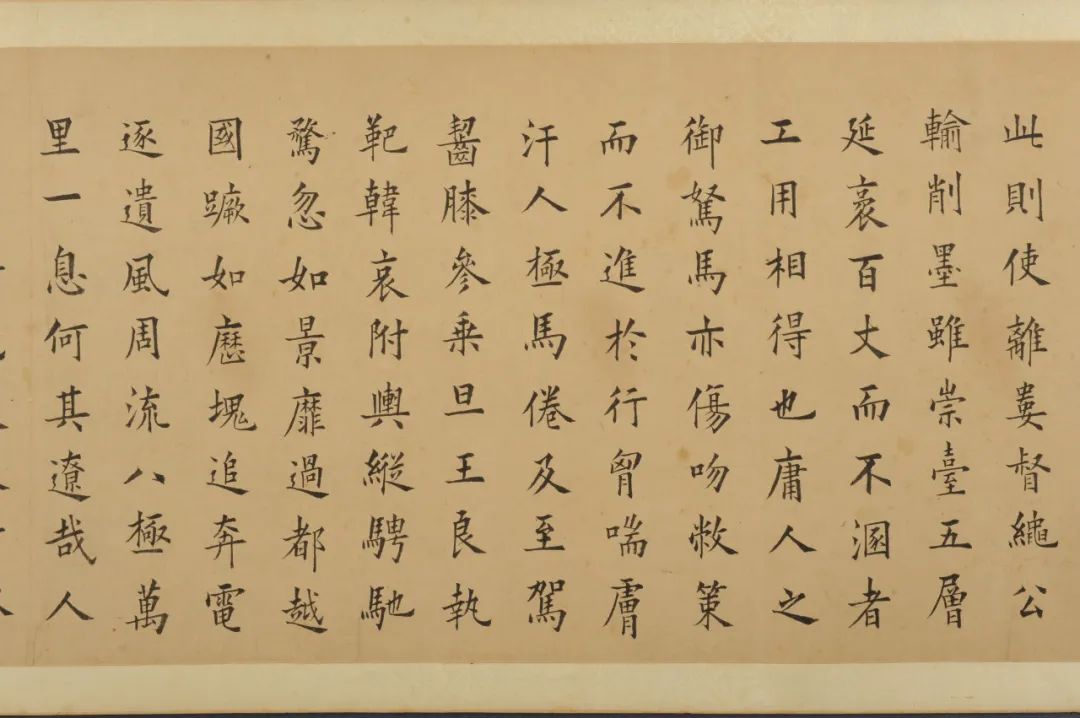 此則使離婁督繩公
輸削墨雖崇臺五層
延袤百丈而不溷者
工用相得也庸人之
御駑馬亦傷吻敝策
而不進於行胷喘膚
汗人極馬倦及至駕
齧膝參乗旦王良執
靶韓哀附輿縱騁馳
騖忽如景靡過都越
國蹶如歷塊追奔電
逐遺風周流八極萬
里一息何其遼哉人